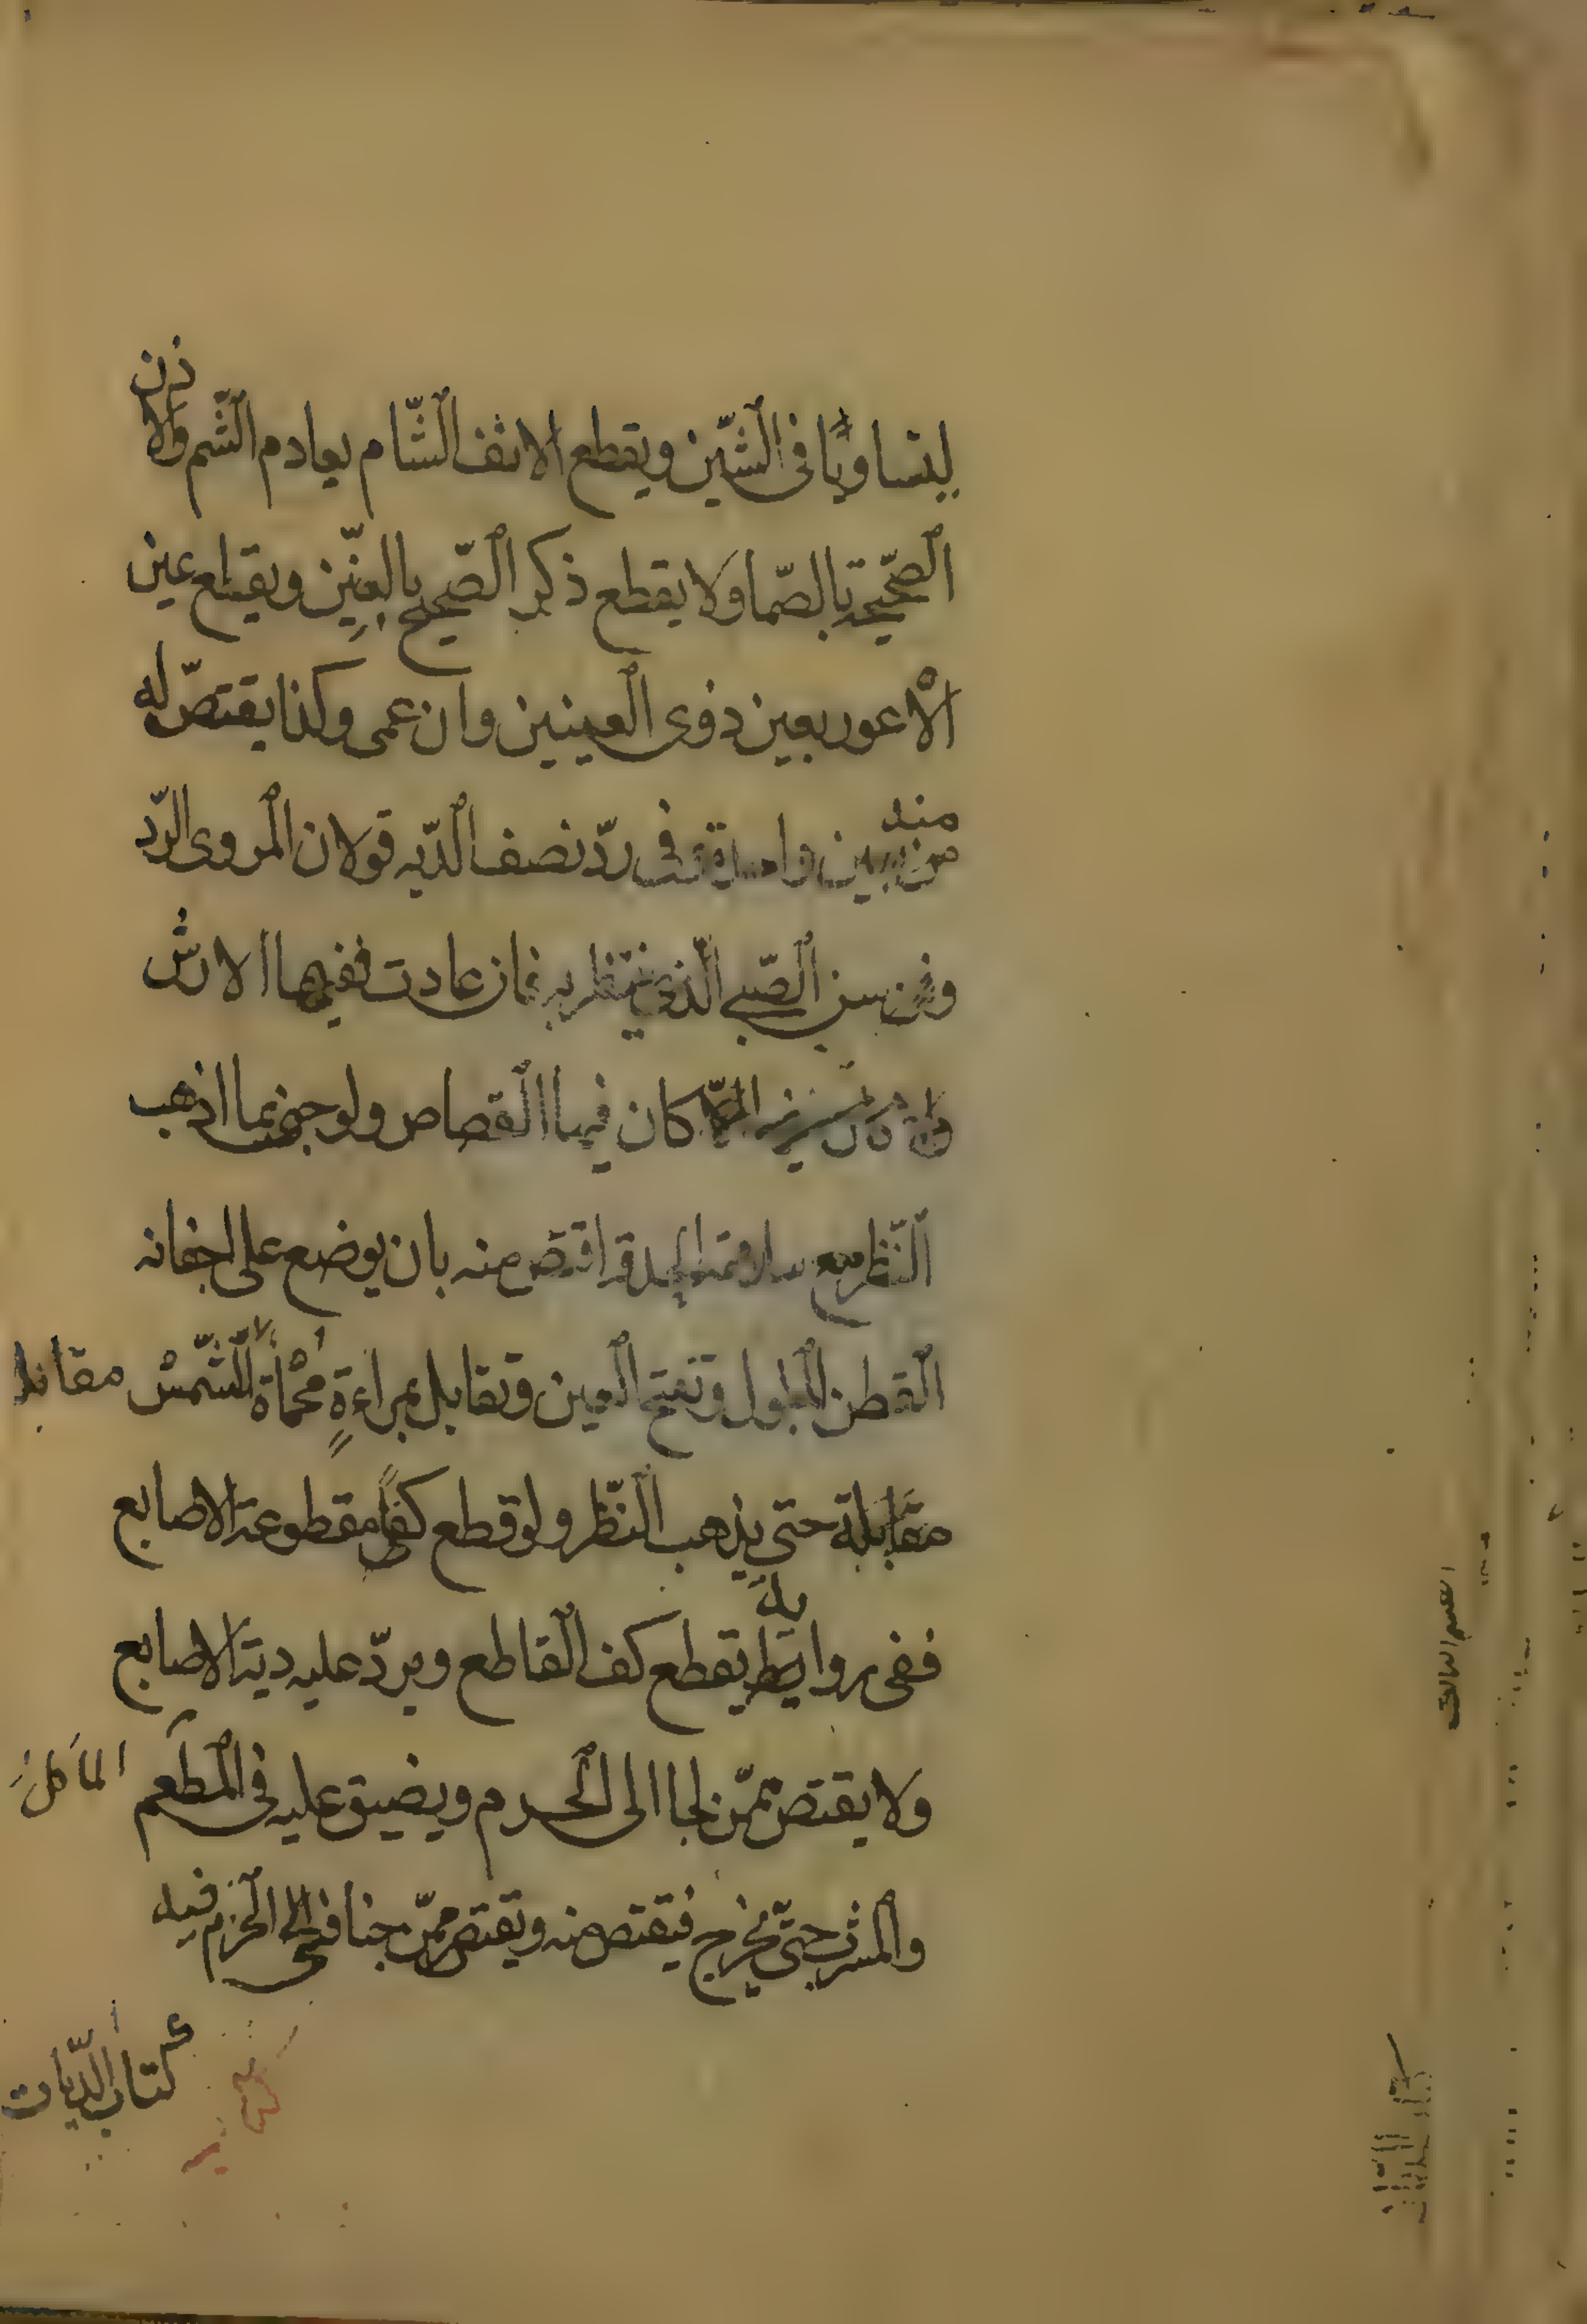 ليتساويا فى الشّين ويقطع الانف الشّام بعادم الشّم والاذن
الصّحيحة بالصّما ولا يقطع ذكر الصّحيح بالعنّين ويقطع عين
الاعور بعين ذوى العينين وان عمى وكذا يقتصّ له
منه بعين واحدة وفى ردّ نصف الدّيه قولان المروى الردّ
وفى سن الصّبى الّذى ينتظر به فان عادت ففيها الارش
كان فيها القصاص ولو جنى بما اذهب
النّظر مع سلامة الحدقة اقتص منه بان يوضع على اجفانه
القطن المبلول وتفتح العين وتقابل بمراءةٍ محْماةٍ للشّمسْ
مقابلة حتى يذهب النّظر ولو قطع كفاً مقطوعة الاصابع
ففى رواية يقطع كف القاطع ويردّ عليه دية الاصابع
ولا يقتص ممّن لجا الى الحرم ويضيق عليه فى المطعم المأكل
والمشرب حتّى يخرج فيقتص منه ويقتص ممّن جنا فى الحرم فيه
كتاب الدّيات